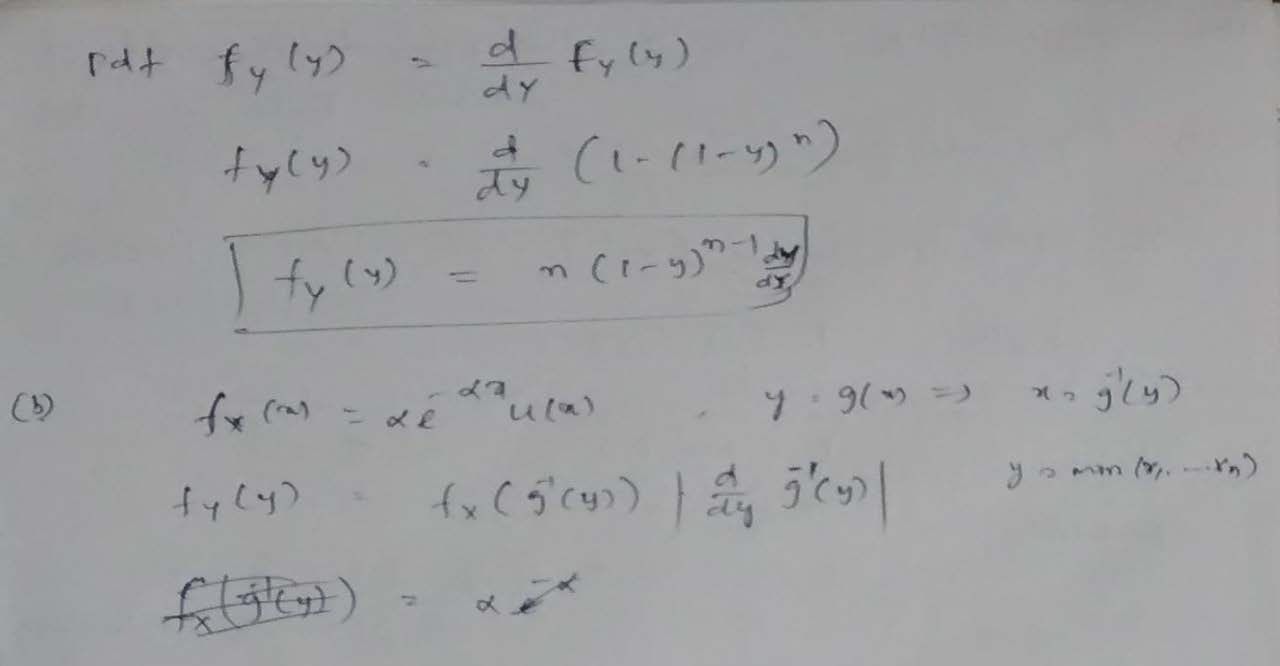 pdf f_Y(y) = d/dy F_Y(y)
f_Y(y) = d/dy (1-(1-y)^n)
f_Y(y) = n(1-y)^{n-1} dy/dx
(b) f_X(x) = αe^{-αx} u(x) , y = g(x) => x = g^{-1}(y)
f_Y(y) = f_X(g^{-1}(y)) | d/dy g^{-1}(y) | y = min(x_1, ... x_n)
f_X(g^{-1}(y)) = α e^{-α}